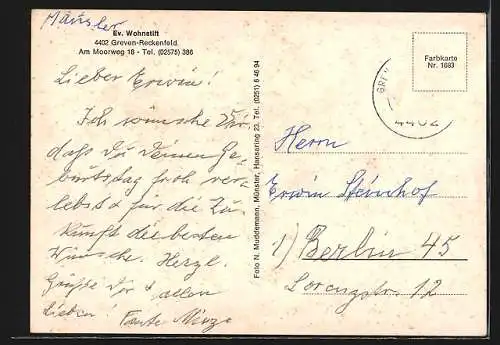 Häusler
Ev. Wohnstift
4402 Greven-Reckenfeld
Am Moorweg 18 - Tel. (02575) 386
Lieber Erwin!
Ich wünsche Dir,
daß du deinen Ge-
burtstag froh ver-
lebst & für die Zu-
kunft die besten
Wünsche. Herzl.
Grüße dir & allen
Lieben. Tante Minze
Foto N. Muddemann, Münster, Hansaring 23, Tel. (0251) 6 46 94
Farbkarte
Nr. 1683
4402
Herrn
Erwin Steinhof
1) Berlin 45
Lorenzstr. 12